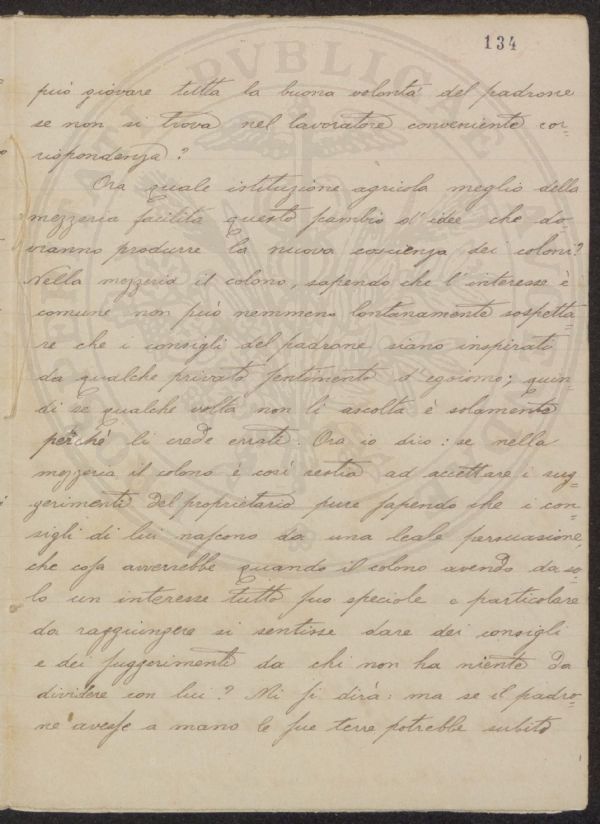 134
può giovare tutta la buona volontà del padrone
se non si trova nel lavoratore conveniente cor=
rispondenza?
Ora quale istituzione agricola meglio della
mezzeria facilita questo scambio d'idee che do=
vranno produrre la nuova coscienza dei coloni?
Nella mezzeria il colono, sapendo che l'interesse è
comune non può nemmeno lontanamente sospetta=
re che i consigli del padrone siano inspirati
da qualche privato sentimento d'egoismo; quin=
di se qualche volta non li ascolta è solamente
perché li crede errati. Ora io dico: se nella
mezzeria il colono è così restio ad accettare i sug=
gerimenti del proprietario pure sapendo che i con=
sigli di lui nascono da una leale persuasione,
che cosa avverrebbe quando il colono avendo da so=
lo un interesse tutto suo speciale e particolare
da raggiungere si sentisse dare dei consigli
e dei suggerimenti da chi non ha niente da
dividere con lui? Mi si dirà: ma se il padro=
ne avesse a mano le sue terre potrebbe subito